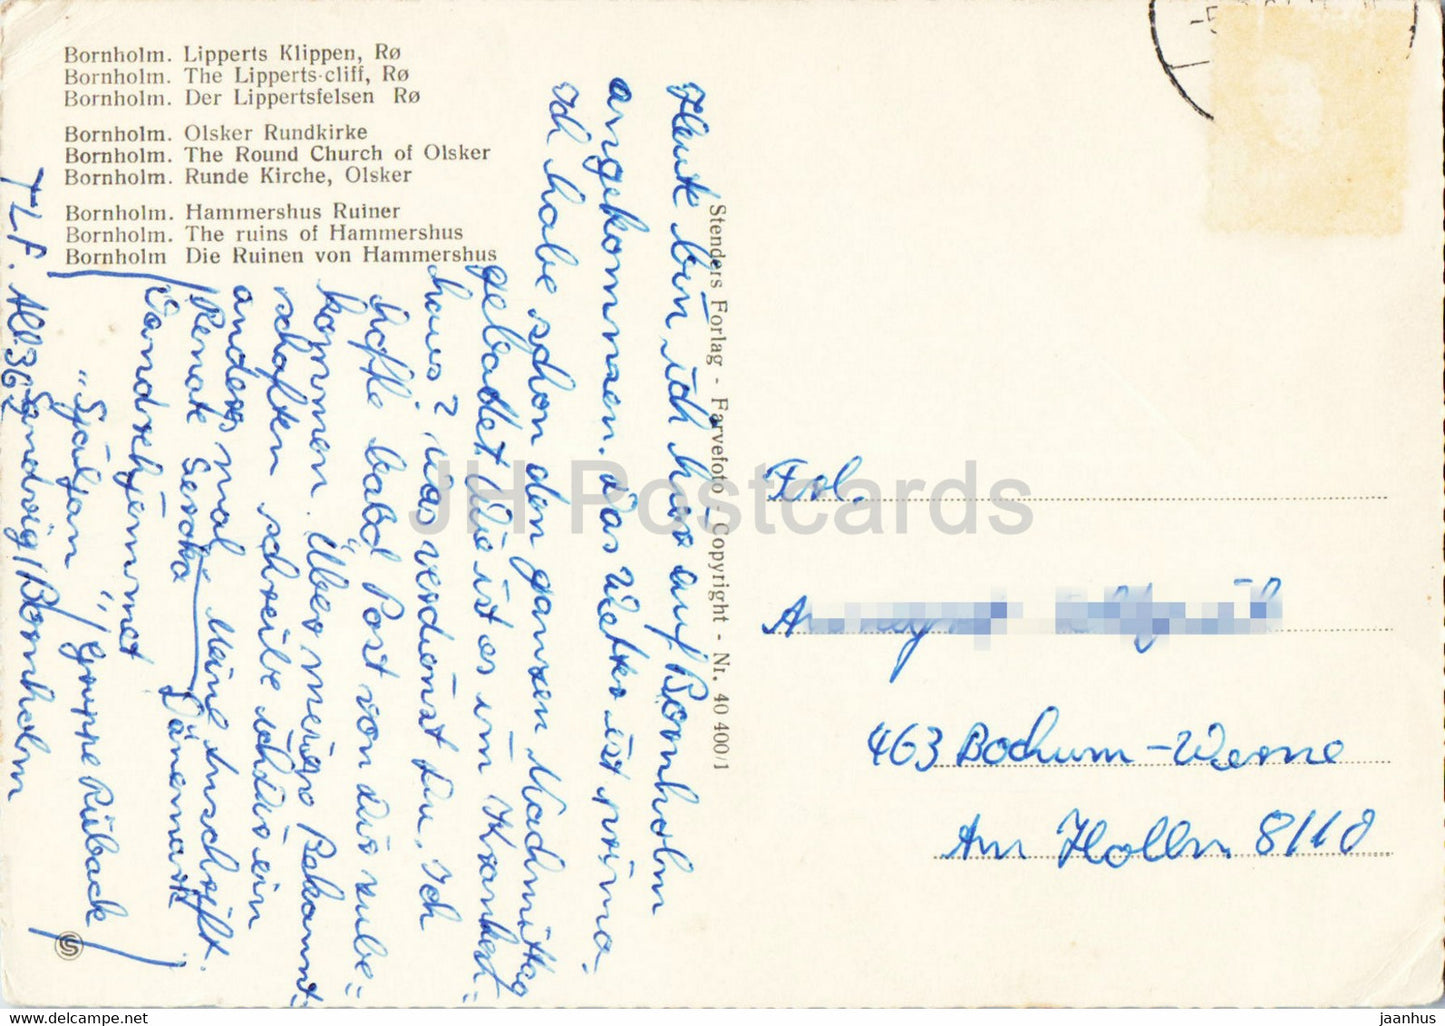 Bornholm. Lipperts Klippen, Rø
Bornholm. The Lipperts-cliff, Rø
Bornholm. Der Lippertsfelsen Rø
Bornholm. Olsker Rundkirke
Bornholm. The Round Church of Olsker
Bornholm. Runde Kirche, Olsker
Bornholm. Hammershus Ruiner
Bornholm. The ruins of Hammershus
Bornholm Die Ruinen von Hammershus
Heute bin ich hier auf Bornholm
angekommen. Das Wetter ist prima.
Ich habe schon den ganzen Nachmittag
gebadet. Wie ist es im Kranken=
haus? Was verdienst Du. Ich
hoffe bald Post von dir zu be=
kommen. Über meine Bekannt=
schaften schreibe ich dir ein
anderes mal. Meine Anschrift.
Renate
Vandrehjemmet Dänemark
"Sjöljan", Gruppe Rüback
Sandvig/Bornholm
TLF. All. 362
Stenders Forlag - Farvefoto - Copyright - Nr. 40 400/1
Frl.
463 Bochum-Werne
Am Holln 8/110
JH Postcards
hippostcard.com
jaanhus